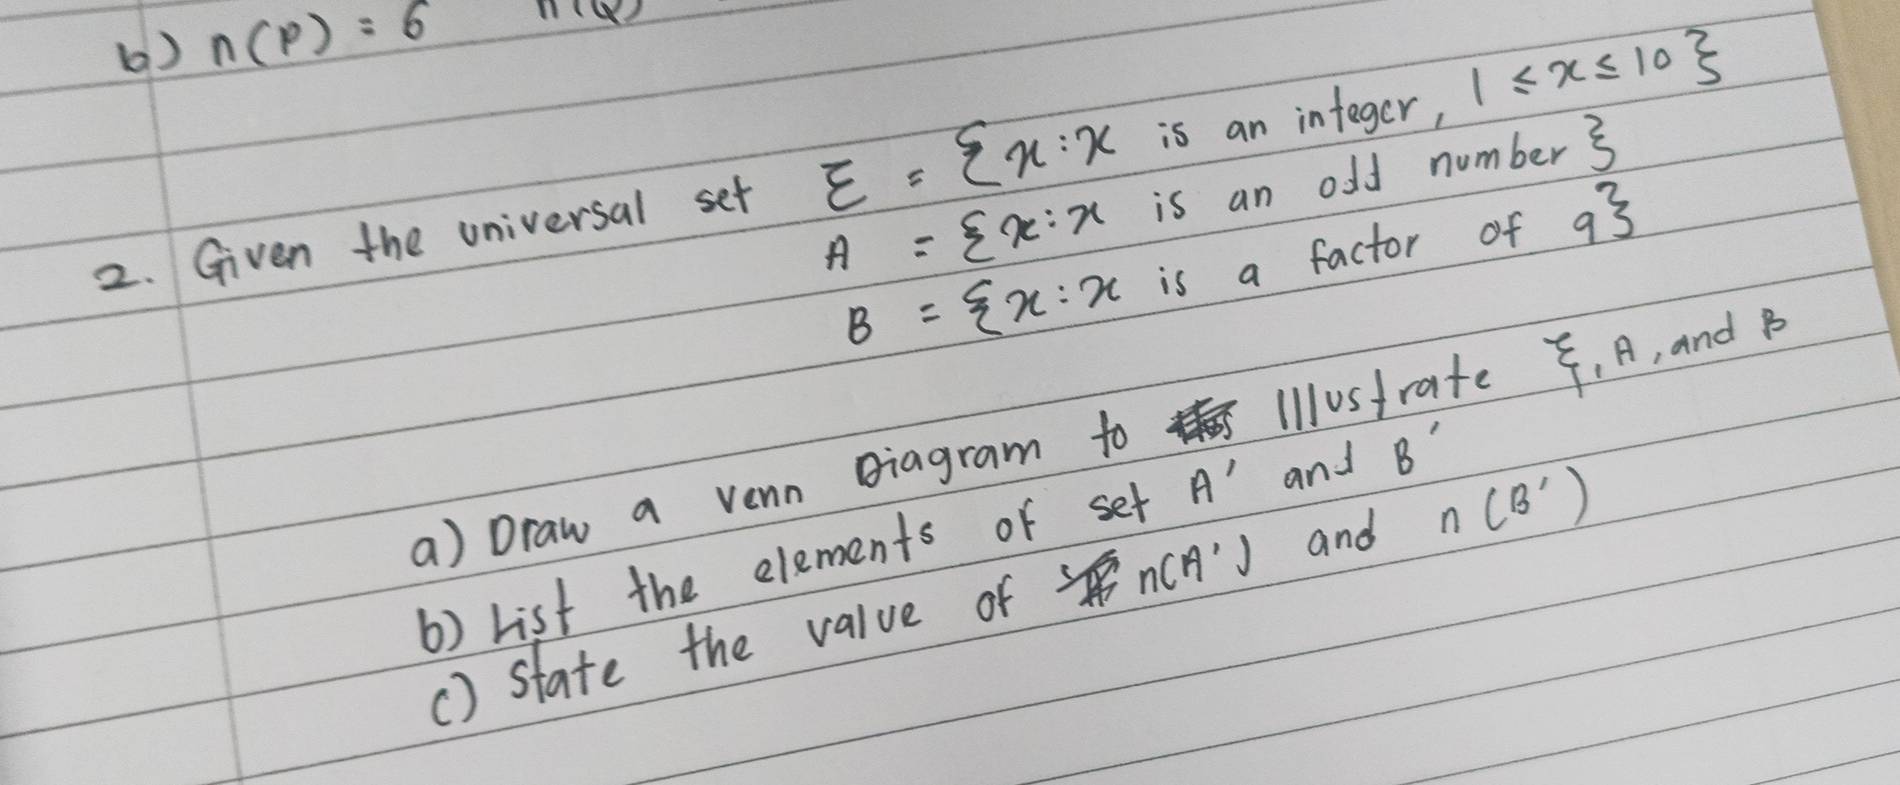 b) n(P) = 6 n(Q)
2. Given the universal set ξ = {x:x is an integer, 1 ≤ x ≤ 10}
A = {x:x is an odd number}
B = {x:x is a factor of 9}
a) Draw a venn Diagram to Illustrate ξ, A, and B
b) List the elements of set A' and B'
c) State the value of n(A') and n(B')